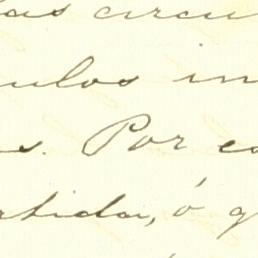 las circu
ulos in
s. Por co
rtida, ó q